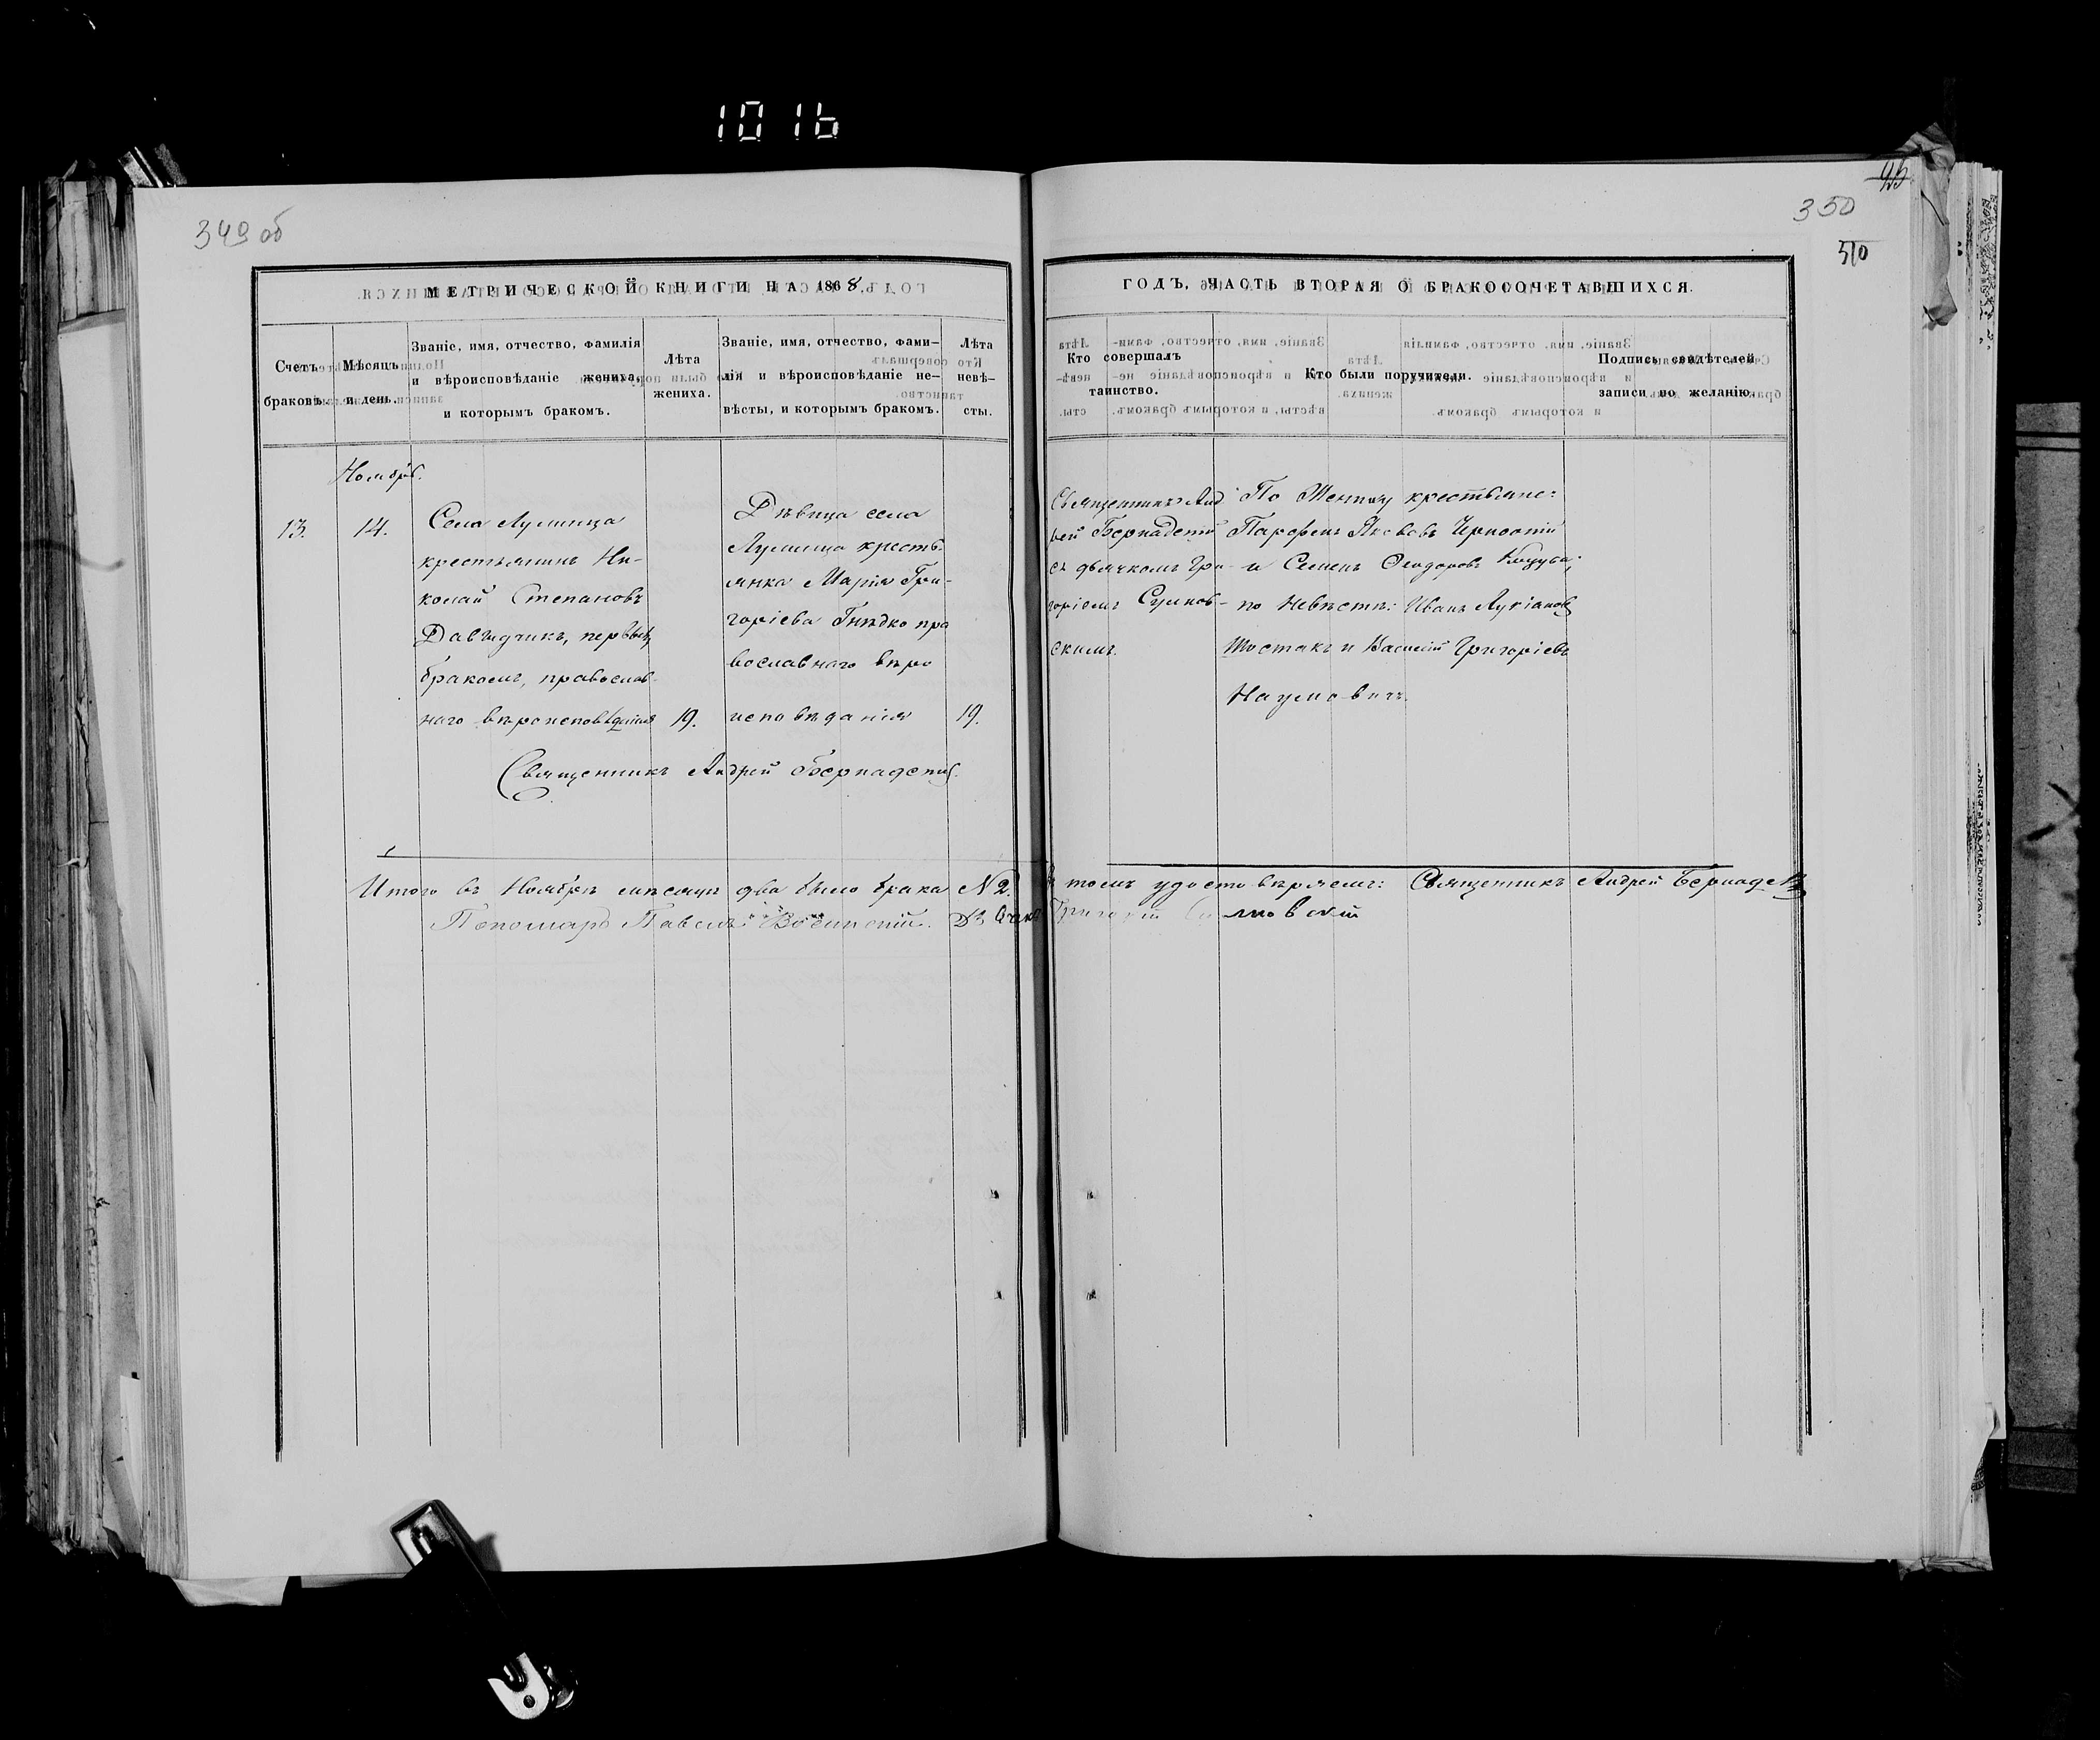 1016
349 об
350
МЕТРИЧЕСКОЙ КНИГИ НА 1868
ГОДЪ, ЧАСТЬ ВТОРАЯ О БРАКОСОЧЕТАВШИХСЯ.
Счетъ
браковъ.
Мѣсяцъ
и день.
Званіе, имя, отчество, фамилія
и вѣроисповѣданіе жениха,
и которымъ бракомъ.
Лѣта
жениха.
Званіе, имя, отчество, фами-
лія и вѣроисповѣданіе не-
вѣсты, и которымъ бракомъ.
Лѣта
невѣ-
сты.
Кто совершалъ
таинство.
Кто были поручители.
Подпись свидѣтелей
записи по желанію.
Ноябрь.
13.
14.
Села Лунинца
крестьянинъ Ни-
колай Степановъ
Давыдчикъ, первымъ
бракомъ, православ-
наго вѣроисповѣданія
19.
Дѣвица села
Лунинца кресть-
янка Марія Гри-
горіева Гнѣдко пра
вославнаго вѣро
исповѣданія
19.
Священникъ Анд
рей Бернадскій
съ дьячкомъ Гри-
горіемъ
скимъ.
По Жениху крестьяне:
Парфенъ Якововъ
и Семенъ Ѳеодоровъ
по Невѣстѣ: Иванъ Лукіановъ
Шостакъ и Василій Григоріевъ
Наумовичъ.
Священникъ Андрей Бернадскій.
Итого въ Ноябрѣ мѣсяцѣ два было брака № 2.
томъ удостовѣряемъ: Священникъ Андрей Бернадскій
Пономарь Павелъ
Дьячекъ Григорій